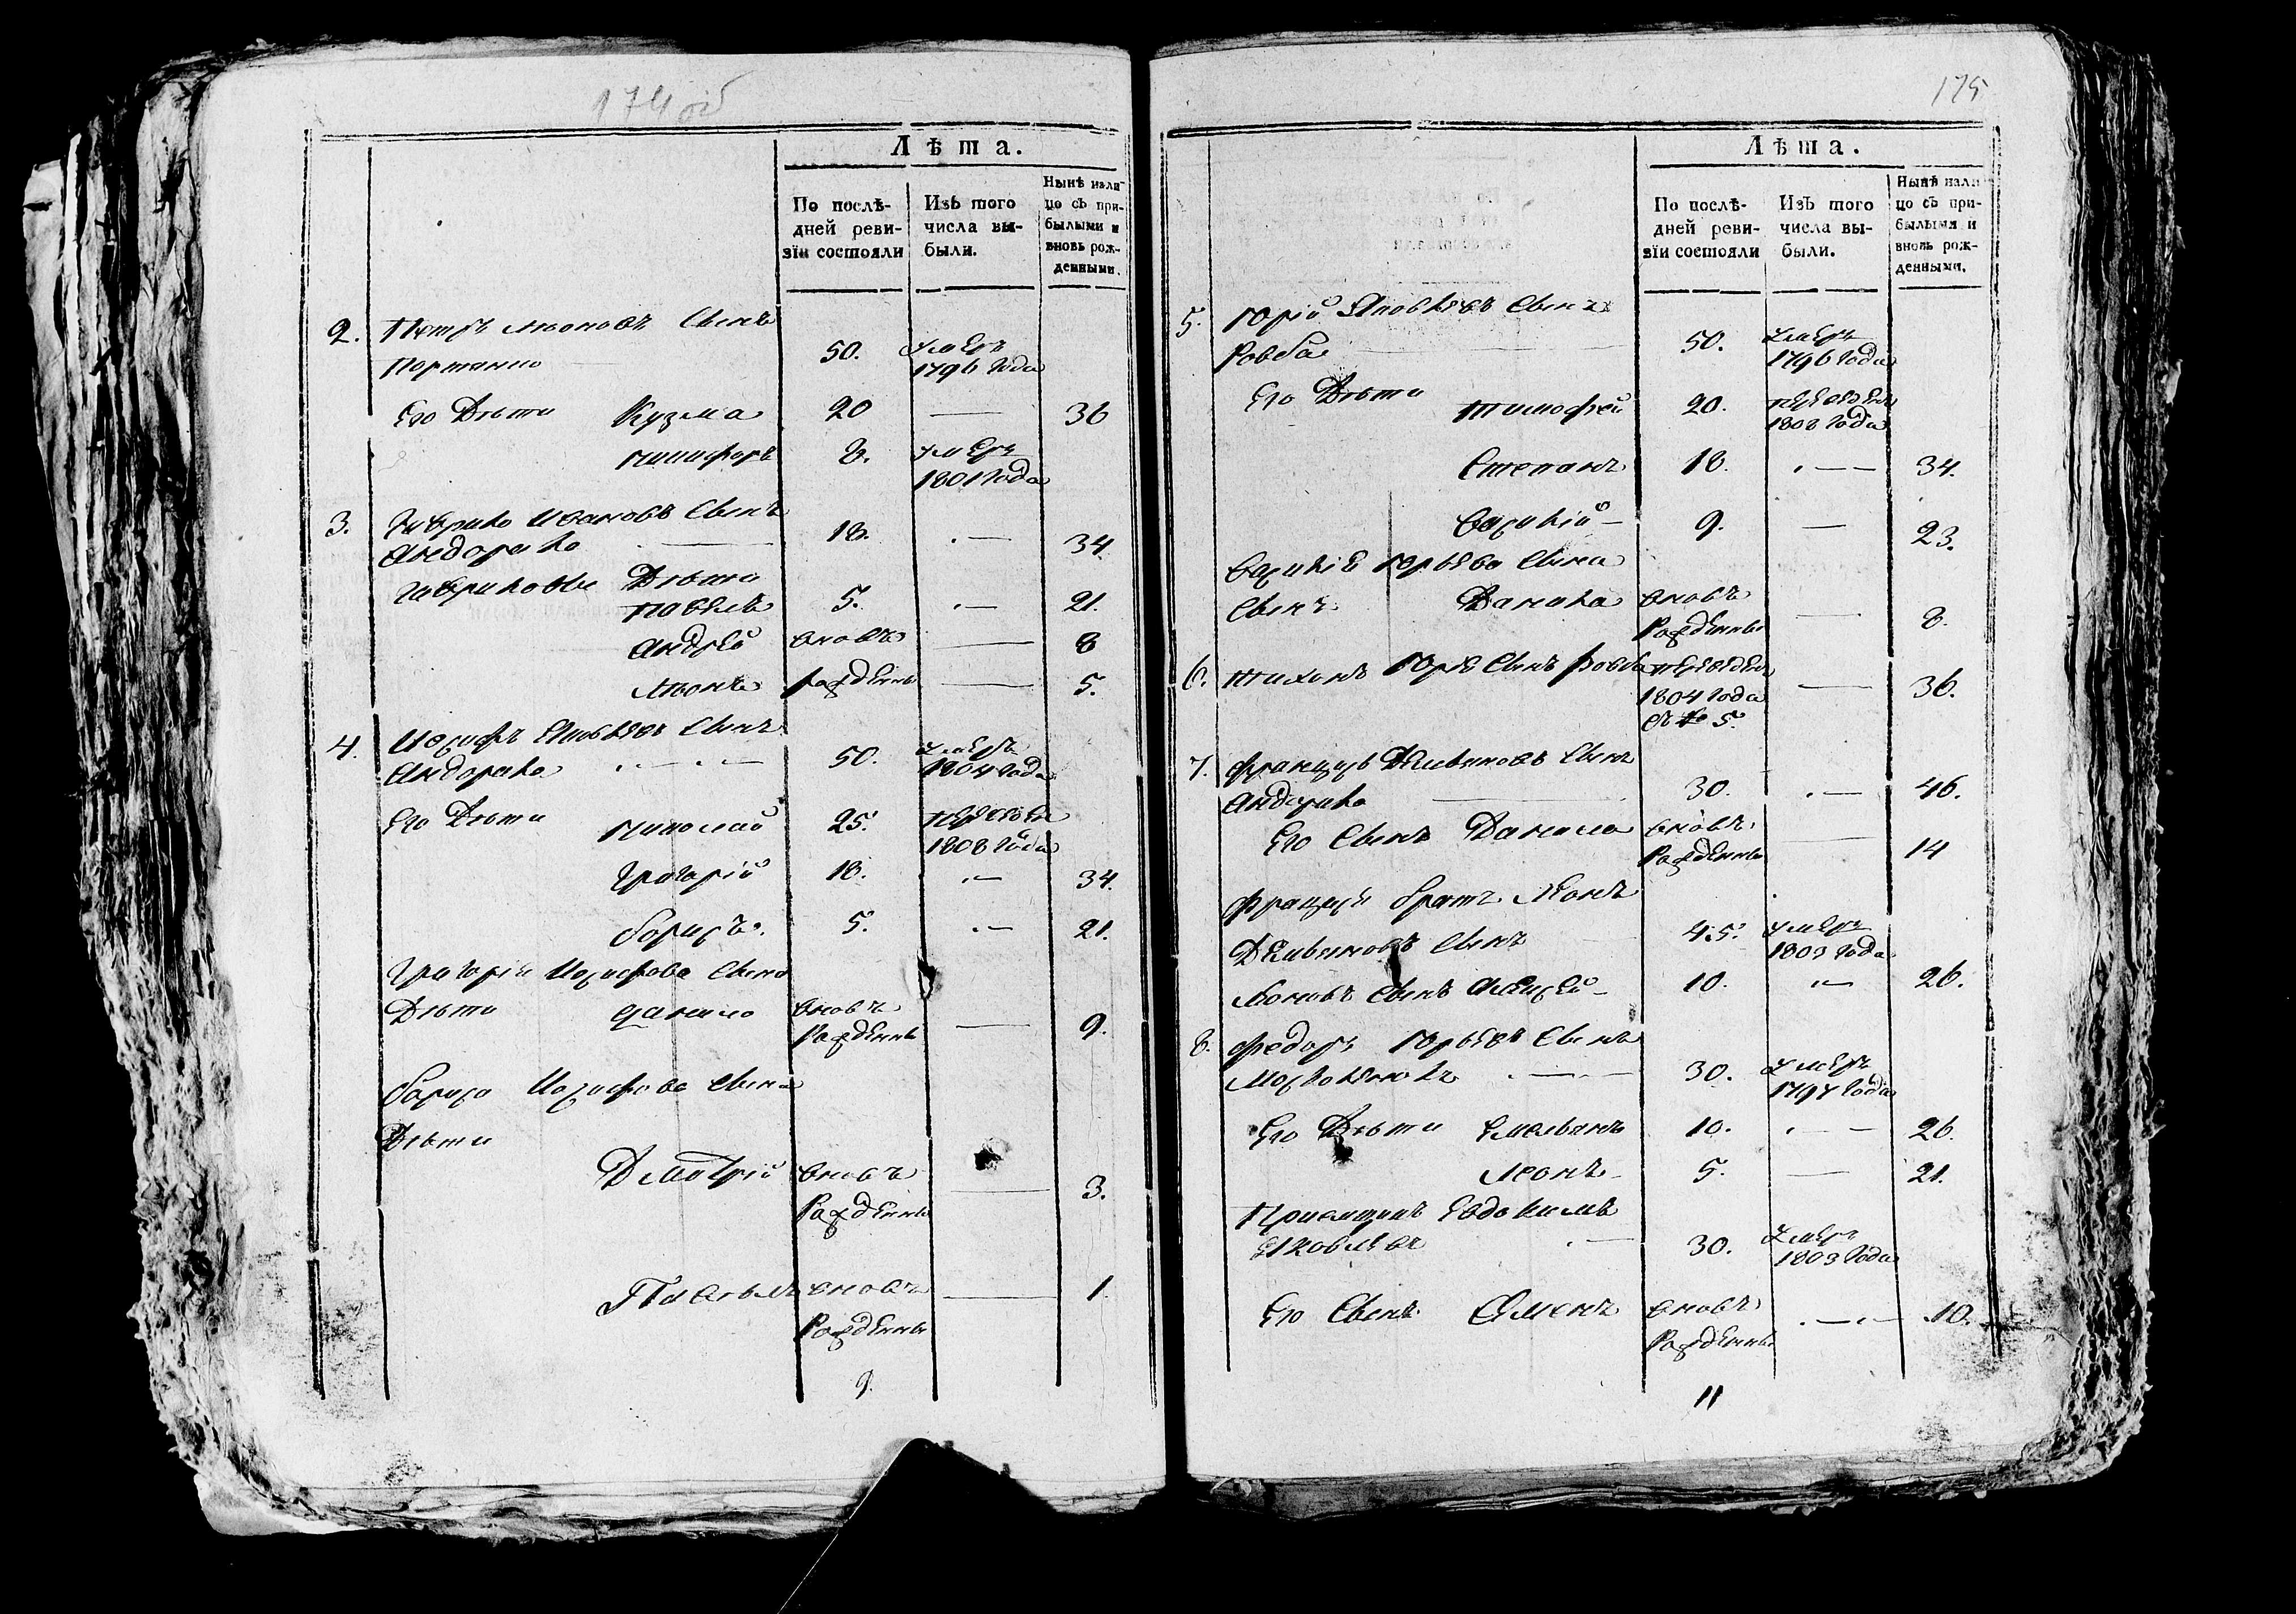 174 об
Лѣта.
По послѣ-
дней реви-
зіи состояли
Изъ того
числа вы-
были.
Нынѣ нали-
цо съ при-
былыми и
вновь рож-
денными.
2. Петръ Леоновъ Сынъ 50. умеръ
1796 Года
Его Дѣти Кузма 20 — 36
Никифоръ 8. умеръ
1801 Года
3. Гаврило Ивановъ Сынъ
Андорако 18. — 34.
Гавриловы Дѣти
Павелъ 5. — 21.
Андрей вновь — 8
Леонъ рожденны — 5.
4. Іосифъ Яковлевъ Сынъ
Андорако 50. умеръ
1804 Года
Его Дѣти Николай 25. переведен
1808 Года
Григорій 18. — 34.
Борисъ. 5. — 21.
Григорія Іосифова Сына
Дѣти Данило вновь
Рожденны — 9.
Бориса Іосифова Сына
Дѣти
Дмитрій вновь
Рожденны — 3.
Павелъ вновь — 1.
Рожденны
9.
175
Лѣта.
По послѣ-
дней реви-
зіи состояли
Изъ того
числа вы-
были.
Нынѣ нали-
цо съ при-
былыми и
вновь рож-
денными.
5. Юрій Яковлевъ Сынъ
Ровба 50. умеръ
1796 Года
Его Дѣти Тимофей 20. переведен
1808 Года
Степанъ 18. — 34.
Василій 9. — 23.
Василія Юрьева Сына
Сынъ Данила вновь
Рожденны — 8.
6. Тихонъ Юрьевъ Сынъ Ровба переведен
1804 Года
съ № 5. — 36.
7. Францъ Демьяновъ Сынъ
Андорако 30. — 46.
Его Сынъ Данила вновь
Рожденны — 14
Франца братъ Леонъ
Демьяновъ Сынъ 45. умеръ
1803 Года
Леоновъ Сынъ Алексей 10. — 26.
8. Федоръ Юрьевъ Сынъ
30. умеръ
1797 Года
Его Дѣти Емельянъ 10. — 26.
Леонъ 5. — 21.
Приемщикъ Евдокимъ
Яковлевъ — 30. умеръ
1803 Года
Его Сынъ Семенъ вновь
Рожденны — 10.
11